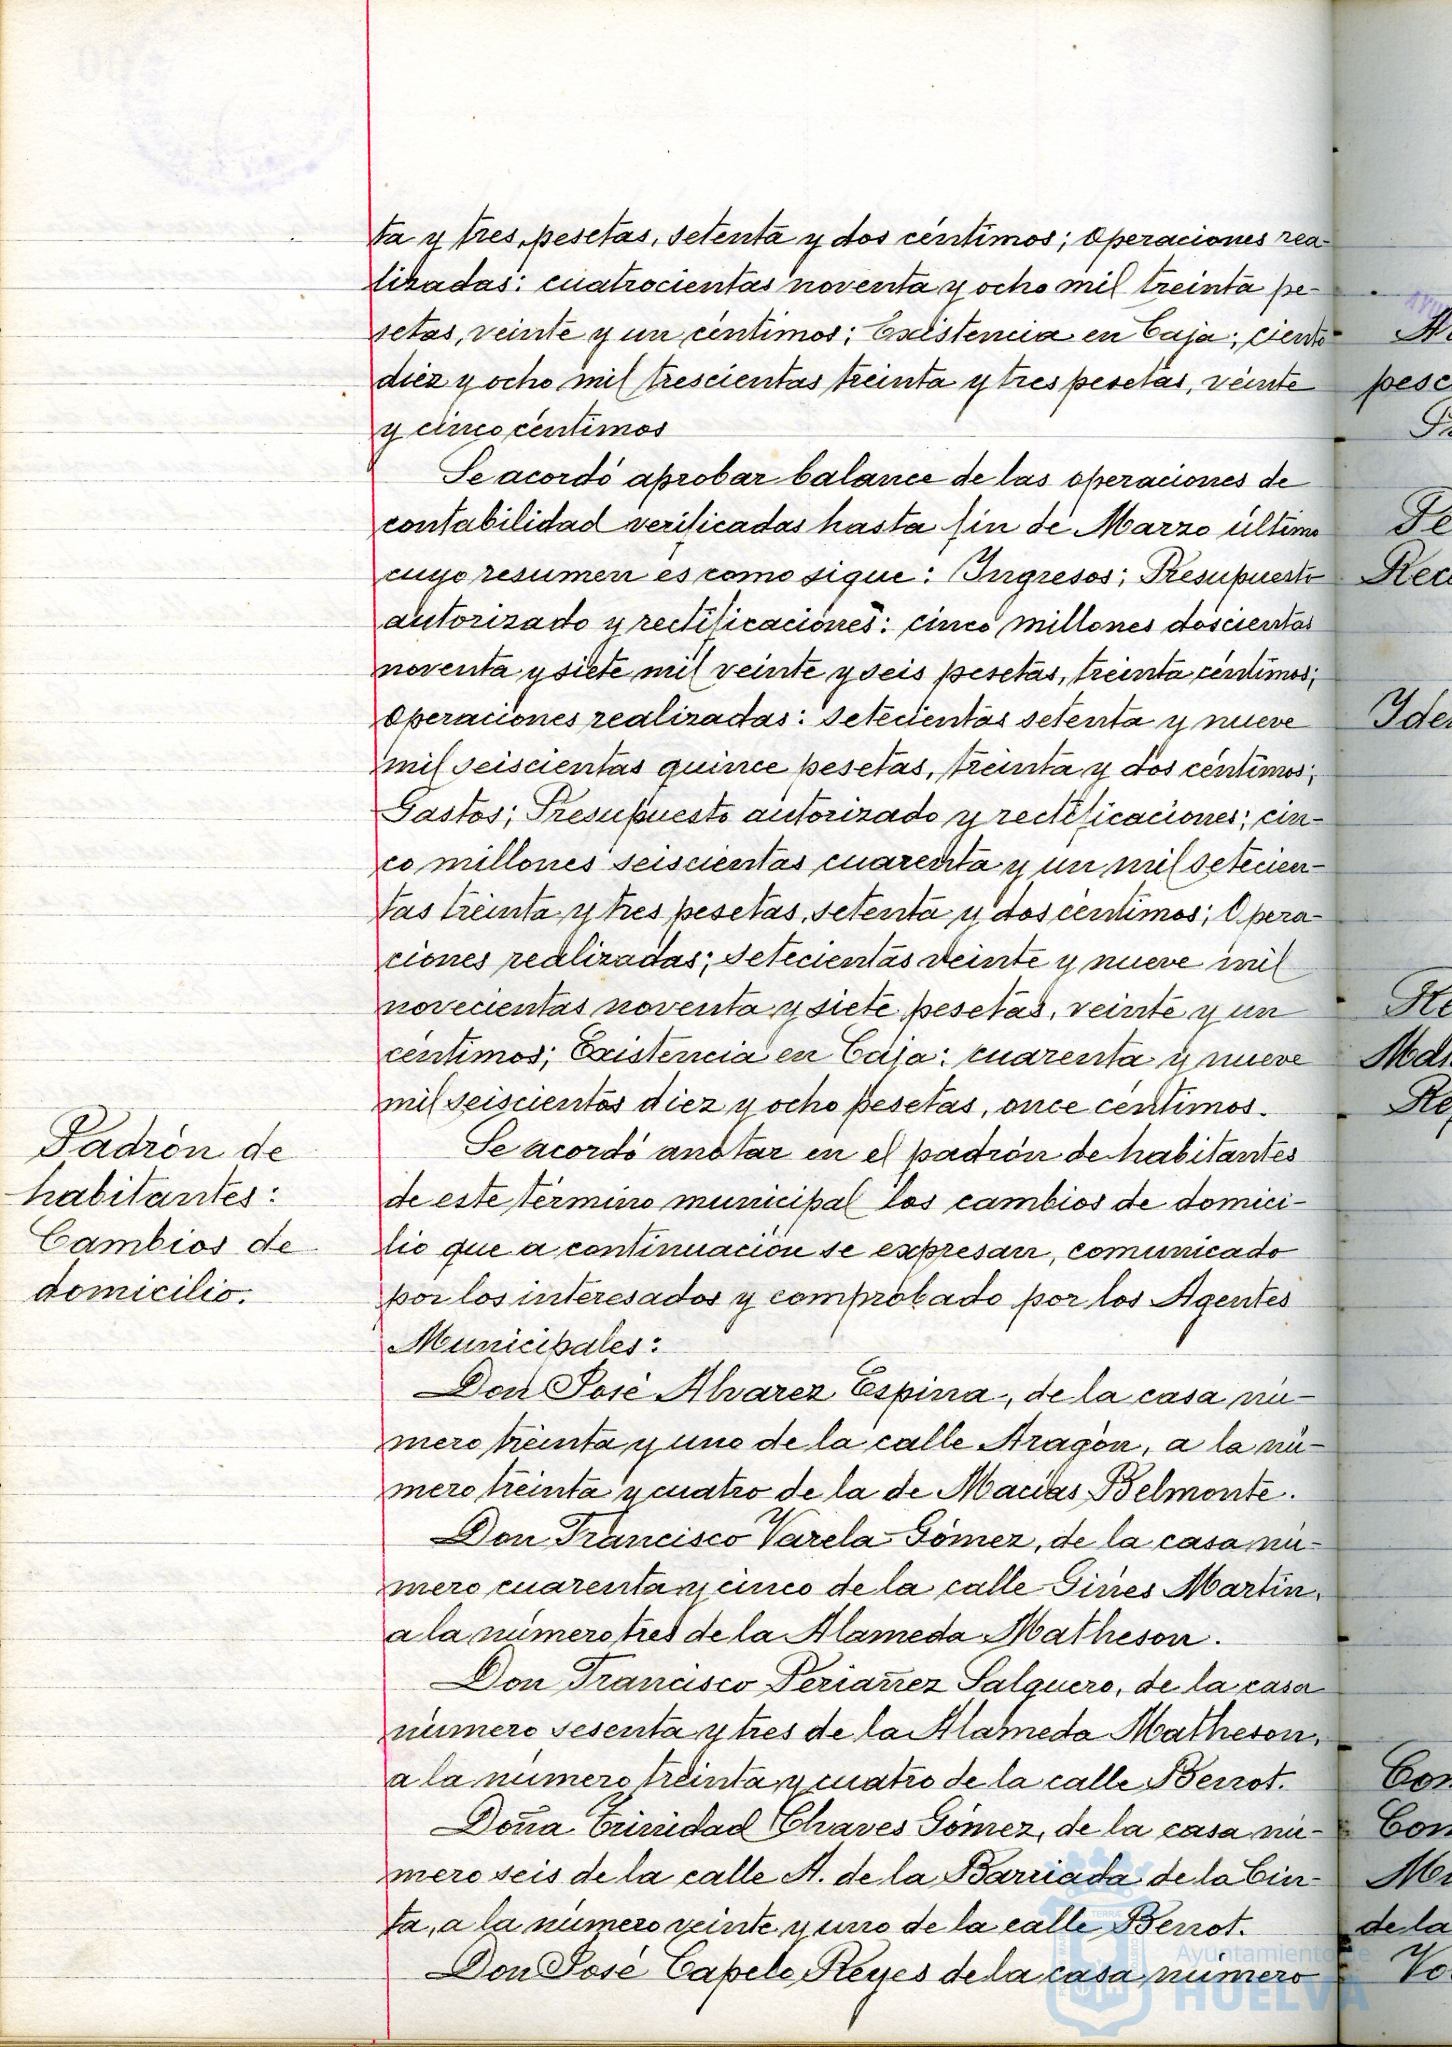 ta y tres pesetas, setenta y dos céntimos; Operaciones rea-
lizadas: cuatrocientas noventa y ocho mil treinta pe-
setas, veinte y un céntimos; Existencia en Caja; ciento
diez y ocho mil trescientas treinta y tres pesetas, veinte
y cinco céntimos
Se acordó aprobar balance de las operaciones de
contabilidad verificadas hasta fin de Marzo último
cuyo resumen es como sigue: Ingresos; Presupuesto
autorizado y rectificaciones: cinco millones doscientas
noventa y siete mil veinte y seis pesetas, treinta céntimos;
Operaciones realizadas: setecientas setenta y nueve
mil seiscientas quince pesetas, treinta y dos céntimos;
Gastos; Presupuesto autorizado y rectificaciones; cin-
co millones seiscientas cuarenta y un mil setecien-
tas treinta y tres pesetas, setenta y dos céntimos; Opera-
ciones realizadas; setecientas veinte y nueve mil
novecientas noventa y siete pesetas, veinte y un
céntimos; Existencia en Caja: cuarenta y nueve
mil seiscientos diez y ocho pesetas, once céntimos.
Padrón de
habitantes:
Cambios de
domicilio.
Se acordó anotar en el padrón de habitantes
de este término municipal los cambios de domici-
lio que a continuación se expresan, comunicado
por los interesados y comprobado por los Agentes
Municipales:
Don José Alvarez Espina, de la casa nú-
mero treinta y uno de la calle Aragón, a la nú-
mero treinta y cuatro de la de Macías Belmonte.
Don Francisco Varela Gómez, de la casa nú-
mero cuarenta y cinco de la calle Ginés Martín,
a la número tres de la Alameda Matheson.
Don Francisco Periañez Salguero, de la casa
número sesenta y tres de la Alameda Matheson,
a la número treinta y cuatro de la calle Berrot.
Doña Trinidad Chaves Gómez, de la casa nú-
mero seis de la calle A. de la Barriada de la Cin-
ta, a la número veinte y uno de la calle Berrot.
Don José Capelo Reyes de la casa número
Ayuntamiento de
HUELVA